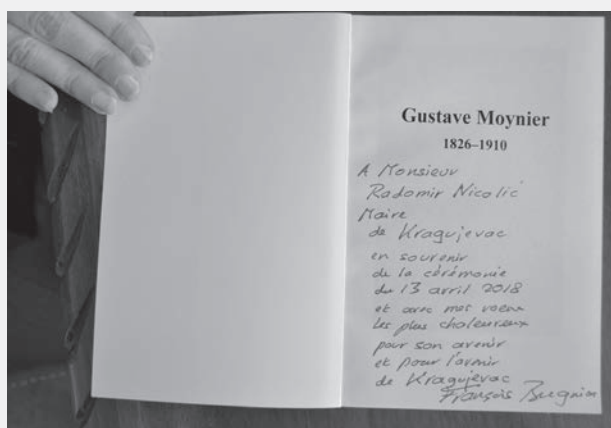 Gustave Moynier
1826–1910
A Monsieur
Radomir Nicolić
Maire
de Kragujevac
en souvenir
de la cérémonie
du 13 avril 2018
et avec mes voeux
les plus chaleureux
pour son avenir
et pour l'avenir
de Kragujevac
François Bugnion